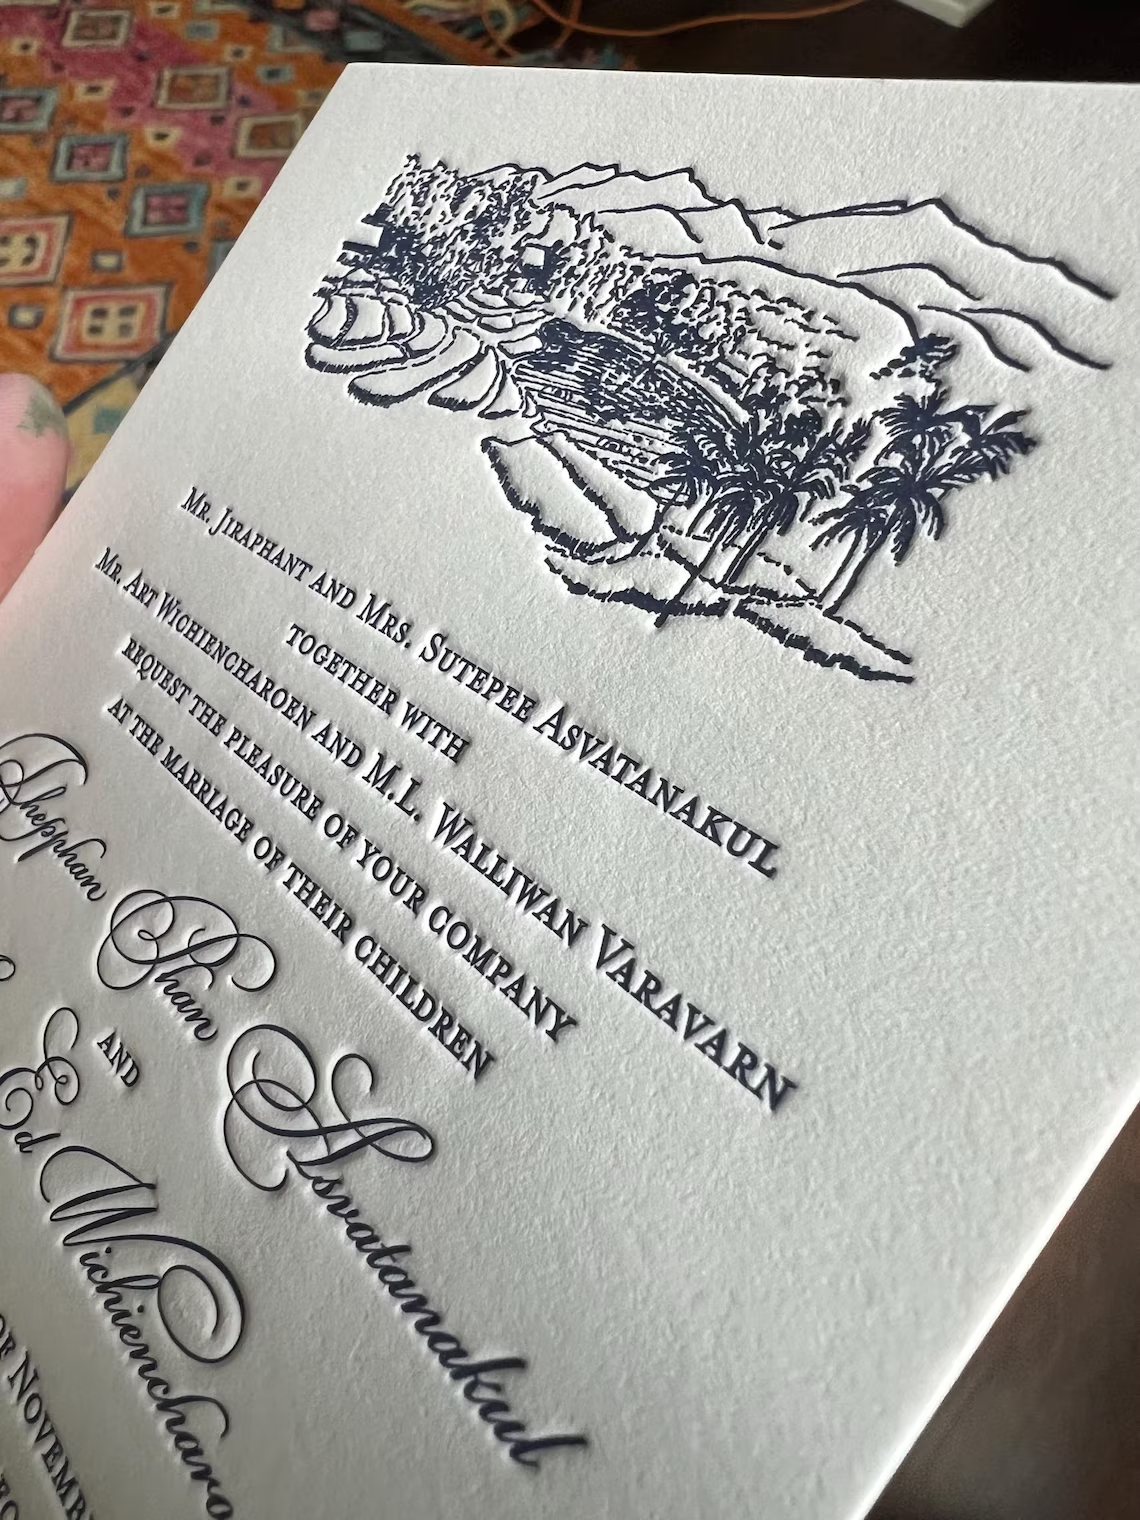 Mr. Jiraphant and Mrs. Sutepee Asvatanakul
together with
Mr. Art Wichiencharoen and M.L. Walliwan Varavarn
request the pleasure of your company
at the marriage of their children
Shepphan Shan Asvatanakul
and
Ed Wichiencharo
of Novemb